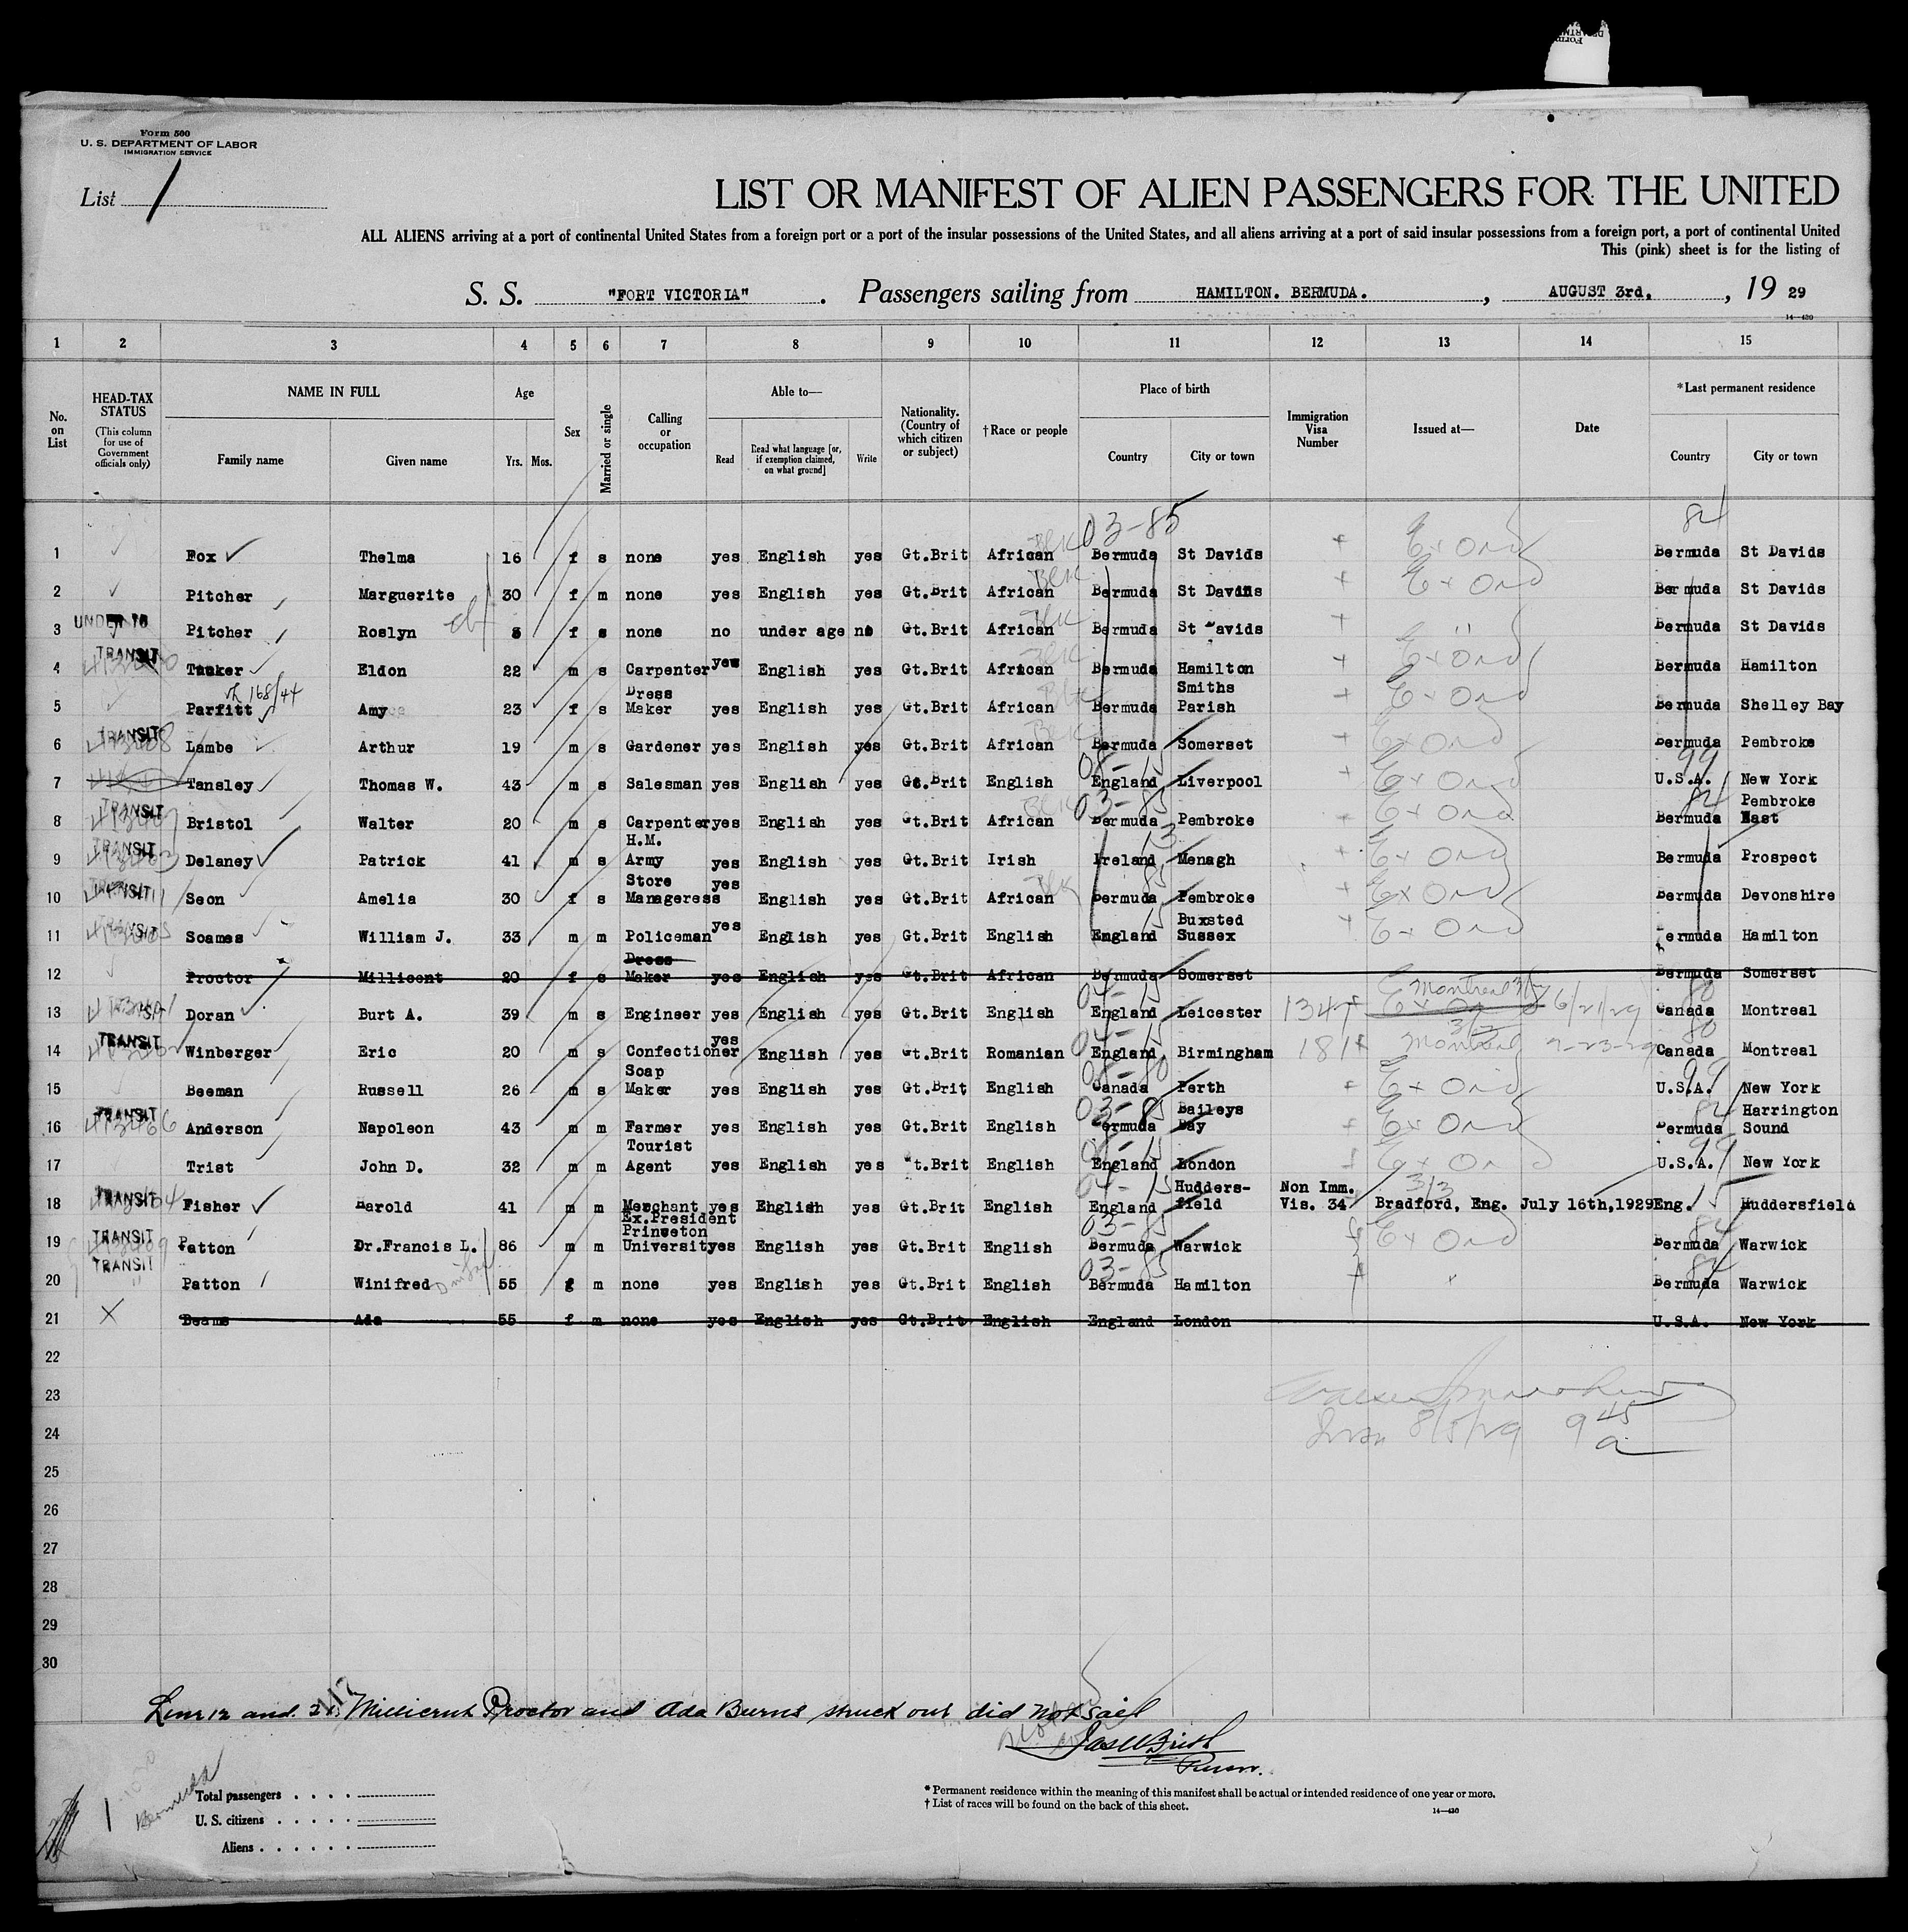 Form 500
U. S. DEPARTMENT OF LABOR
IMMIGRATION SERVICE
List 1
LIST OR MANIFEST OF ALIEN PASSENGERS FOR THE UNITED
ALL ALIENS arriving at a port of continental United States from a foreign port or a port of the insular possessions of the United States, and all aliens arriving at a port of said insular possessions from a foreign port, a port of continental United
This (pink) sheet is for the listing of
S. S. "FORT VICTORIA". Passengers sailing from HAMILTON. BERMUDA., AUGUST 3rd., 19 29
14—430
1 2 3 4 5 6 7 8 9 10 11 12 13 14 15
No. on List
HEAD-TAX STATUS (This column for use of Government officials only)
NAME IN FULL Family name Given name
Age Yrs. Mos.
Sex
Married or single
Calling or occupation
Able to— Read Read what language [or, if exemption claimed, on what ground] Write
Nationality. (Country of which citizen or subject)
†Race or people
Place of birth Country City or town
Immigration Visa Number
Issued at—
Date
*Last permanent residence Country City or town
03-85 84
1 Fox Thelma 16 f s none yes English yes Gt.Brit African Blk Bermuda St Davids Ex Ord Bermuda St Davids
2 Pitcher Marguerite 30 f m none yes English yes Gt.Brit African Blk Bermuda St Davids Ex Ord Bermuda St Davids
3 UNDER 16 Pitcher Roslyn f s none no under age no Gt.Brit African Blk Bermuda St Davids " Bermuda St Davids
4 TRANSIT Tucker Eldon 22 m s Carpenter yes English yes Gt.Brit African Blk Bermuda Hamilton Ex Ord Bermuda Hamilton
5 Parfitt 168/44 Amy 23 f s Dress Maker yes English yes Gt.Brit African Blk Bermuda Smiths Parish Ex Ord Bermuda Shelley Bay
6 TRANSIT Lambe Arthur 19 m s Gardener yes English yes Gt.Brit African Blk Bermuda Somerset Ex Ord Bermuda Pembroke
7 Tansley Thomas W. 43 m s Salesman yes English yes Gt.Brit English England Liverpool Ex Ord U.S.A. 99 New York
8 TRANSIT Bristol Walter 20 m s Carpenter yes English yes Gt.Brit African Blk 03-85 Bermuda Pembroke Ex Ord 84 Bermuda Pembroke East
9 TRANSIT Delaney Patrick 41 m s H.M. Army yes English yes Gt.Brit Irish 13 Ireland Menagh Ex Ord Bermuda Prospect
10 TRANSIT Seon Amelia 30 f s Store Manageress yes English yes Gt.Brit African Blk 85 Bermuda Pembroke Ex Ord Bermuda Devonshire
11 TRANSIT Soames William J. 33 m m Policeman yes English yes Gt.Brit English 15 England Buxsted Sussex Ex Ord Bermuda Hamilton
12 Proctor Millicent 20 f s Dress Maker yes English yes Gt.Brit African Bermuda Somerset Bermuda Somerset
13 Doran Burt A. 39 m s Engineer yes English yes Gt.Brit English England Leicester 134 Montreal 6/21/29 80 Canada Montreal
14 TRANSIT Winberger Eric 20 m s Confectioner yes English yes Gt.Brit Romanian England Birmingham 181 Montreal 7-23-29 80 Canada Montreal
15 Beeman Russell 26 m s Soap Maker yes English yes Gt.Brit English Canada Perth Ex Ord U.S.A. 99 New York
16 TRANSIT Anderson Napoleon 43 m m Farmer yes English yes Gt.Brit English 03-85 Bermuda Baileys Bay Ex Ord 84 Bermuda Harrington Sound
17 Trist John D. 32 m m Tourist Agent yes English yes Gt.Brit English England London Ex Ord U.S.A. 99 New York
18 TRANSIT Fisher Harold 41 m m Merchant yes English yes Gt.Brit English England Huddersfield Non Imm. Vis. 34 313 Bradford, Eng. July 16th,1929 Eng. 15 Huddersfield
19 TRANSIT Patton Dr.Francis L. 86 m m Ex.President Princeton University yes English yes Gt.Brit English 03-85 Bermuda Warwick Ex Ord 84 Bermuda Warwick
20 TRANSIT " Patton Winifred 55 f m none yes English yes Gt.Brit English 03-85 Bermuda Hamilton " 84 Bermuda Warwick
21 X Beams Ada 55 f m none yes English yes Gt.Brit English England London U.S.A. New York
22
23
24 8/5/29 9 45 a
25
26
27
28
29
30
Line 12 and 21, Millicent Proctor and Ada Burns struck out did not sail
Purser.
Bermuda
Total passengers
U. S. citizens
Aliens
* Permanent residence within the meaning of this manifest shall be actual or intended residence of one year or more.
† List of races will be found on the back of this sheet.
14—430